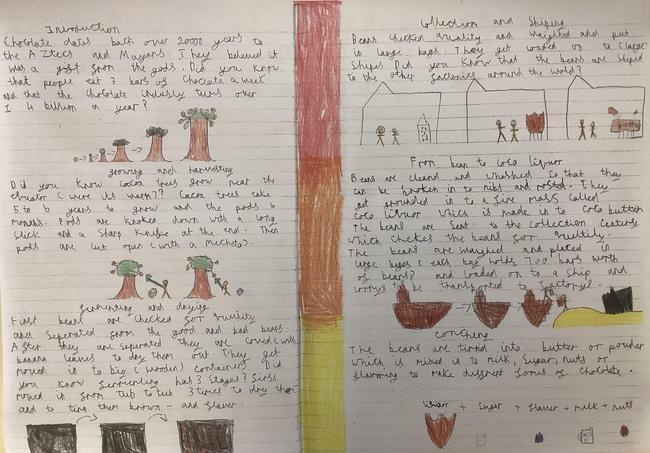 Introduction
Chocolate dates back over 2000 years to
the AZtecs and Mayans. They beleived it
was a gift from the gods. Did you know
that people eat 3 bars of choclate a week.
and that the chocolate industy over
1 4 billion a year?
growing and harvesting
Did you know Cocoa trees grow near the
(were its warm)? Cocoa trees take
5 to 6 years to grow and the pods 6
months. Pods are knoked down with a long
Stick and a Sharp at the end. Then
pods are cut open (with a Machete).
fermenting and drying
First beans are checked for
and seperated from the good and bad beans.
After they are seperated they are coverd (with
banana leaves to dry them out They get
moved in to big (wooden) containers Did
you know fermenting has 3 Stages? first
moved in from tub to tub 3 times to dry them
and to turn them brown - and flaver.
Collection and Shiping
Beans checked and weighted and put
in large bags. They get loaded on to (large
Ships Did you Know that the beans are Shiped
to the other factories around the world?
From bean to Coco liquer
Beans are cleand and so that they
can be broken in to nibs and They
get grounded in to a fine mass called
Coco liquor which is made in to Coco butter
The beans are Sent to the Collection
which the beans for
The beans are and placed in
large bages (each bag holds 700 bars worth
of beans? and loaded on to a Ship and
to be transported to factorys.
Conching
The beans are into butter or pouder
which is mixed in to milk, Sugar, nuts or
to make forms of chocolate.
liquer + sugar + flaver + milk + nuts